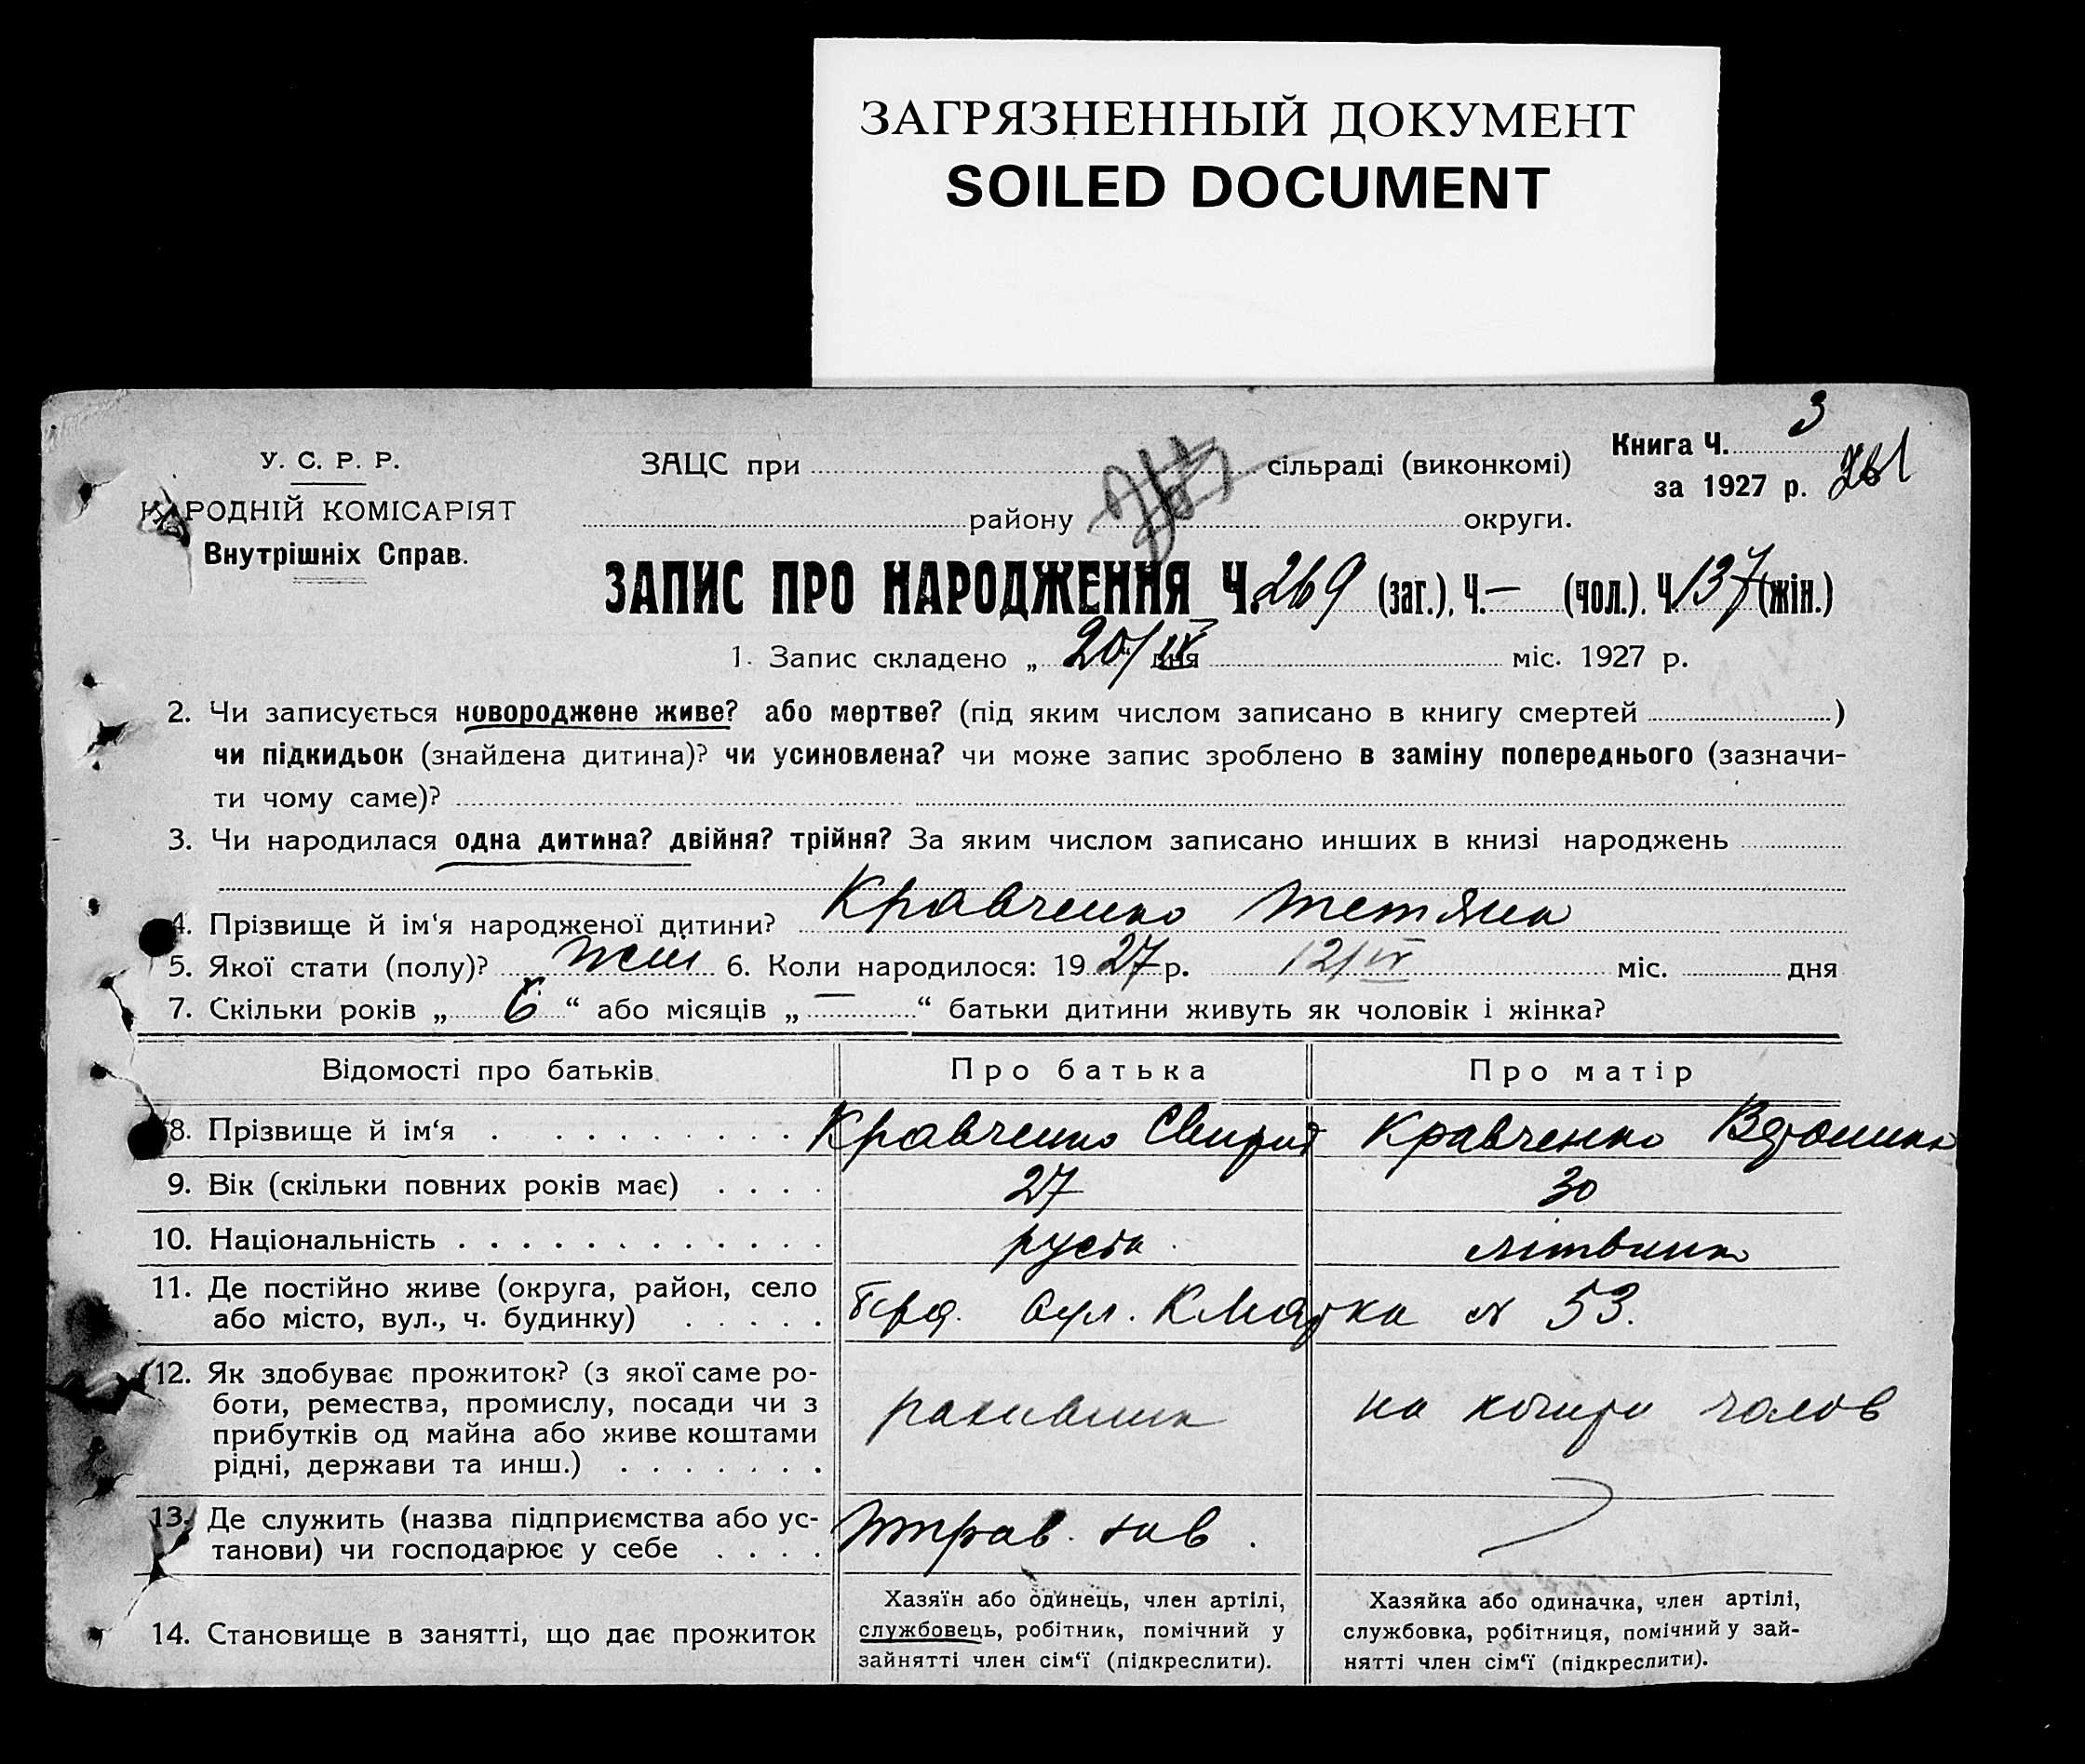 ЗАГРЯЗНЕННЫЙ ДОКУМЕНТ
SOILED DOCUMENT
У. С. Р. Р.
НАРОДНІЙ КОМІСАРІЯТ
Внутрішніх Справ.
ЗАЦС при сільраді (виконкомі)
району округи.
Книга Ч. 3
за 1927 р. 261
ЗАПИС ПРО НАРОДЖЕННЯ Ч. 269 (заг.), Ч. — (чол.), Ч. 137 (жін.)
1. Запис складено „ 20/IX “ дня міс. 1927 р.
2. Чи записується новороджене живе? або мертве? (під яким числом записано в книгу смертей )
чи підкидьок (знайдена дитина)? чи усиновлена? чи може запис зроблено в заміну попереднього (зазначи-
ти чому саме)?
3. Чи народилася одна дитина? двійня? трійня? За яким числом записано инших в книзі народжень
4. Прізвище й ім‘я народженої дитини? Кравченко Тетяна
5. Якої стати (полу)? жін 6. Коли народилося: 1927 р. 12/IX міс. дня
7. Скільки років „ 6 “ або місяців „ — “ батьки дитини живуть як чоловік і жінка?
Відомості про батьків Про батька Про матір
8. Прізвище й ім‘я Кравченко Свирид Кравченко
9. Вік (скільки повних років має) 27 30
10. Національність літвинка
11. Де постійно живе (округа, район, село
або місто, вул., ч. будинку) вул. К Маркса № 53.
12. Як здобуває прожиток? (з якої саме ро-
боти, ремества, промислу, посади чи з
прибутків од майна або живе коштами
рідні, держави та инш.) на кошти чолов
13. Де служить (назва підприємства або ус-
танови) чи господарює у себе
14. Становище в занятті, що дає прожиток
Хазяїн або одинець, член артілі,
службовець, робітник, помічний у
зайнятті член сім‘ї (підкреслити).
Хазяйка або одиначка, член артілі,
службовка, робітниця, помічний у зай-
нятті член сім‘ї (підкреслити).